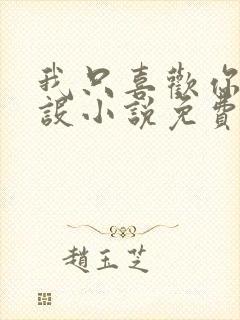 我只喜歡你
設小說免費
趙玉芝